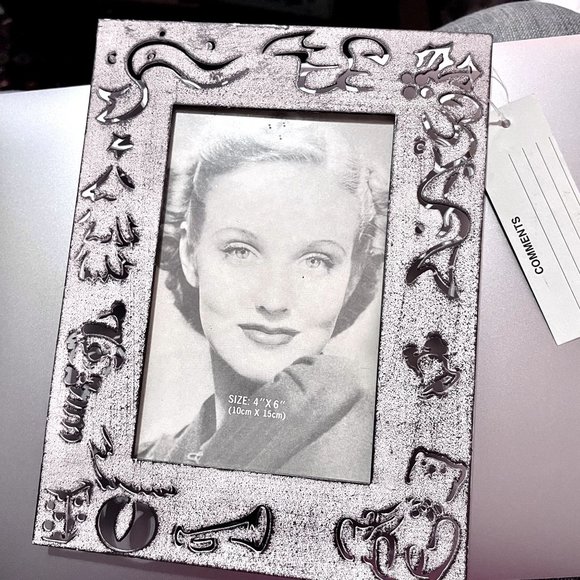 SIZE: 4"X6"
(10cm X 15cm)
COMMENTS